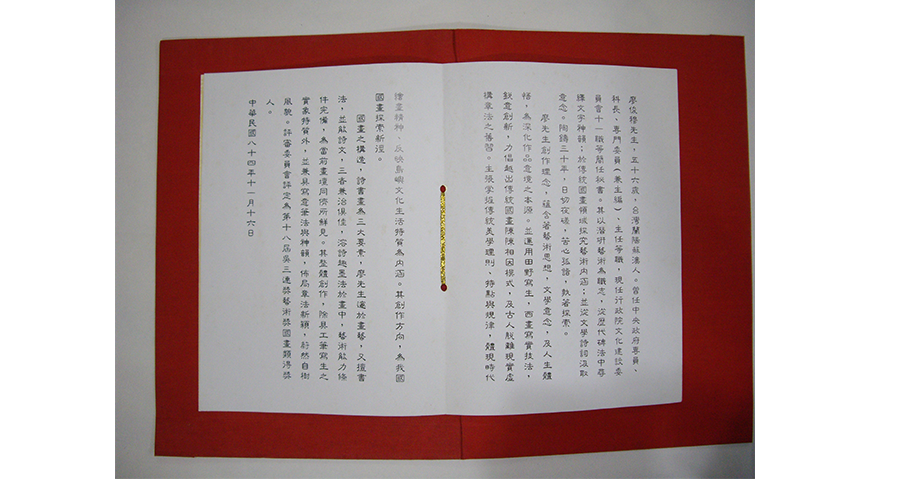 廖俊穆先生，五十六歲，台灣蘭陽莊漢人。曾任中央政府專員、
科長、專門委員（兼主編）、主任等職，現任行政院文化建設委
員會十一職等簡任秘書。其以潛研藝術為職志，從歷代碑法中尋
繹文字神韻；於傳統國畫領域探究藝術內涵；並從文學詩詞汲取
意念。陶鑄三十年，日切夜磋，苦心孤詣，執著探索。
廖先生創作理念，蘊含著藝術思想，文學意念，及人生體
悟，為深化作品意境之本源。並運用田野寫生，西畫寫實技法，
銳意創新，力倡超出傳統國畫陳陳相因模式，及古人脫離現實虛
構章法之舊習。主張掌握傳統美學理則、特點與規律，體現時代
繪畫精神，反映島嶼文化生活特質為內涵。其創作方向，為我國
國畫探索新徑。
國畫之構造，詩書畫為三大要素，廖先生邃於畫藝，又擅書
法，並能詩文，三者兼治俱佳，溶詩趣墨法於畫中，藝術能力條
件完備，為當前畫壇同儕所鮮見。其整體創作，除具工筆寫生之
實象特質外，並兼具寫意筆法與神韻，佈局章法新穎，蔚然自樹
風貌。評審委員會評定為第十八屆吳三連獎藝術獎國畫類得獎
人。
中華民國八十四年十一月十六日